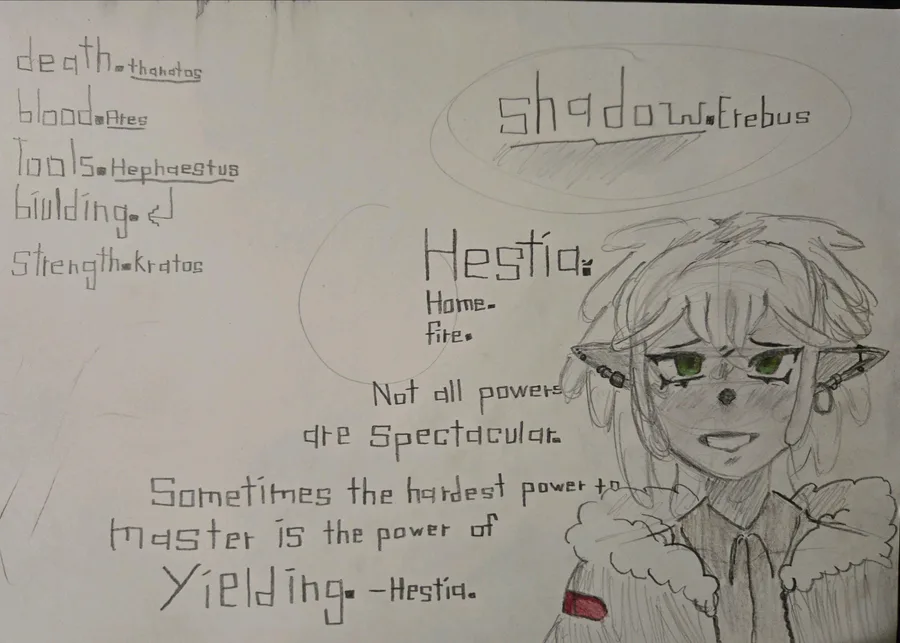 death. thanatos
blood. Ares
Tools. Hephaestus
biulding. ↲
strength. kratos
shadow. Erebus
Hestia:
Home.
fire.
Not all powers
are Spectacular.
Sometimes the hardest power to
master is the power of
Yielding. -Hestia.